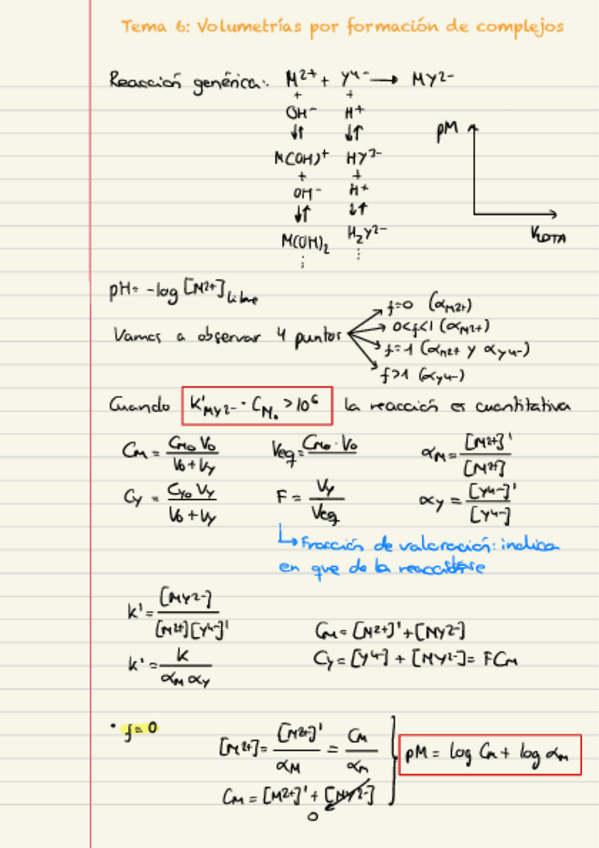 Tema 6: Volumetrías por formación de complejos
Reacción genérica: M2+ + Y4- → MY2-
+ +
OH- H+
↓↑ ↓↑
M(OH)+ HY3-
+ +
OH- H+
↓↑ ↓↑
M(OH)2 H2Y2-
⋮ ⋮
pM
VEDTA
pH = -log [M2+] libre
Vamos a observar 4 puntos
f=0 (αM2+)
0<f<1 (αM2+)
f=1 (αM2+ y αY4-)
f>1 (αY4-)
Cuando K'MY2- · CM0 > 10^6 la reacción es cuantitativa
CM = CM0 V0 / V0+VY Veq = CM0 · V0 αM = [M2+]' / [M2+]
CY = CY0 VY / V0+VY F = VY / Veq αY = [Y4-]' / [Y4-]
↳ Fracción de valoración: indica
en que de la reacción
K' = [MY2-] / [M2+][Y4-]'
CM = [M2+]' + [MY2-]
K' = K / αM αY
CY = [Y4-] + [MY2-] = FCM
· f=0
[M2+] = [M2+]' / αM = CM / αM
pM = log CM + log αM
CM = [M2+]' + [MY2-]
0